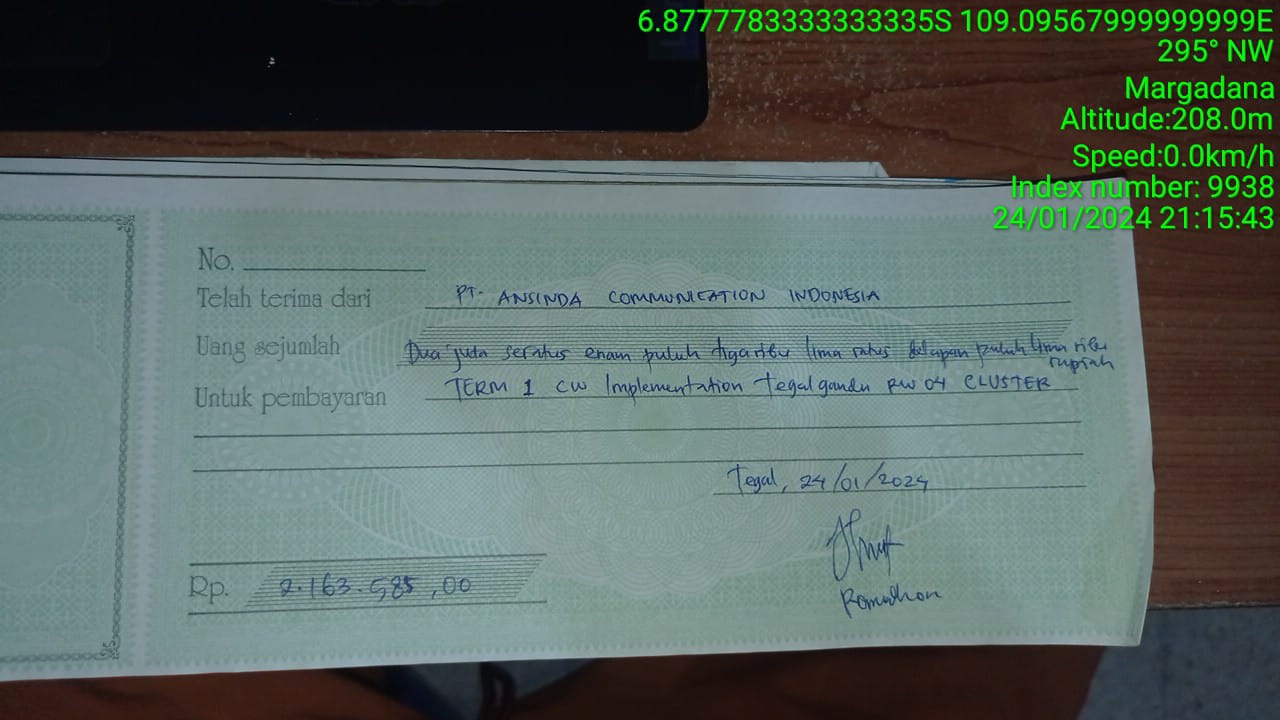 6.8777783333333335S 109.09567999999999E
295° NW
Margadana
Altitude:208.0m
Speed:0.0km/h
Index number: 9938
24/01/2024 21:15:43
No.
Telah terima dari PT. ANSINDA COMMUNICATION INDONESIA
Uang sejumlah Dua juta seratus enam puluh tiga ribu lima ratus delapan puluh lima ribu
rupiah
Untuk pembayaran TERM 1 CW Implementation Tegalgandu RW 04 CLUSTER
Tegal, 24/01/2024
Rp. 2.163.585,00
Romadhon